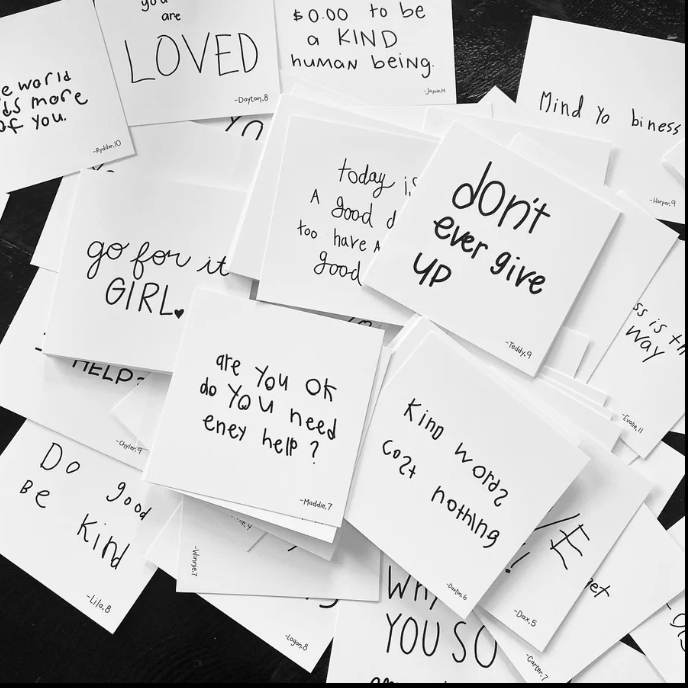 you
are
LOVED
-Dayton,8
$0.00 to be
a KIND
human being.
e world
ds more
of you.
-Ryddin,10
Mind Yo biness
-Harper,9
today is
A good d
too have A
good
don't
ever give
up
-Teddy,9
go for it
GIRL
ss is th
way
HELP?
are You OK
do YOU need
eney help?
-Maddie,7
Kind words
cost nothing
Do good
Be Kind
-Lila,8
-Logan,8
-Dax,5
et
-Carter,7
WHY
YOU SO